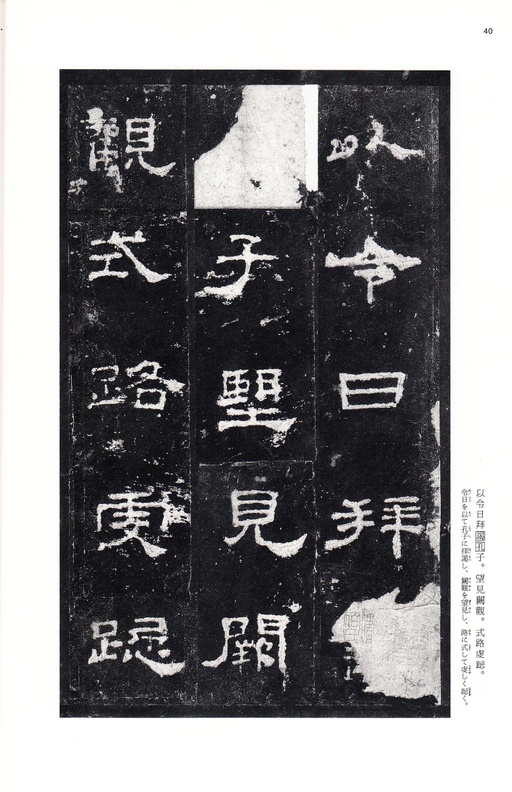 40
以令日拜
子望見闕
觀式路虔跽
以令日拜謁孔子。望見闕觀。式路虔跽。
令日を以て孔子に拜謁し、闕觀を望見し、路に式して虔しく跽く。